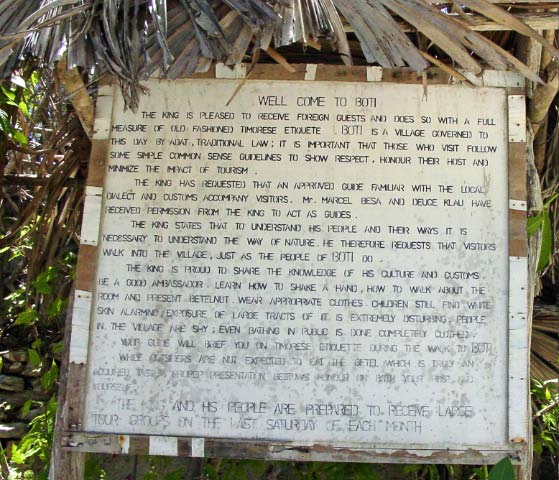 WELL COME TO BOTI
THE KING IS PLEASED TO RECEIVE FOREIGN GUESTS AND DOES SO WITH A FULL
MEASURE OF OLD FASHIONED TIMORESE ETIQUETE . BOTI IS A VILLAGE GOVERNED TO
THIS DAY BY ADAT, TRADITIONAL LAW ; IT IS IMPORTANT THAT THOSE WHO VISIT FOLLOW
SOME SIMPLE COMMON SENSE GUIDELINES TO SHOW RESPECT , HONOUR THEIR HOST AND
MINIMIZE THE IMPACT OF TOURISM .
THE KING HAS REQUESTED THAT AN APPROVED GUIDE FAMILIAR WITH THE LOCAL
DIALECT AND CUSTOMS ACCOMPANY VISITORS . Mr. MARCEL BESA AND DEUCE KLAU HAVE
RECEIVED PERMISSION FROM THE KING TO ACT AS GUIDES .
THE KING STATES THAT TO UNDERSTAND HIS PEOPLE AND THEIR WAYS IT IS
NECESSARY TO UNDERSTAND THE WAY OF NATURE . HE THEREFORE REQUESTS THAT VISITORS
WALK INTO THE VILLAGE , JUST AS THE PEOPLE OF BOTI DO .
THE KING IS PROUD TO SHARE THE KNOWLEDGE OF HIS CULTURE AND CUSTOMS .
BE A GOOD AMBASSADOR . LEARN HOW TO SHAKE A HAND , HOW TO WALK ABOUT THE
ROOM AND PRESENT BETELNUT . WEAR APPROPRIATE CLOTHES . CHILDREN STILL FIND WHITE
SKIN ALARMING , EXPOSURE OF LARGE TRACTS OF IT IS EXTREMELY DISTURBING . PEOPLE
IN THE VILLAGE ARE SHY ; EVEN BATHING IN PUBLIC IS DONE COMPLETELY CLOTHED .
YOUR GUIDE WILL BRIEF YOU ON TIMORESE ETIQUETTE DURING THE WALK TO BOTI
WHILE OUTSIDERS ARE NOT EXPECTED TO EAT THE BETEL WHICH IS TRULY AN
PROPER PRESENTATION BESTOWS HONOUR ON BOTH YOUR HOST AND
YOURSELF
THE KING AND HIS PEOPLE ARE PREPARED TO RECEIVE LARGE
TOUR GROUPS ON THE LAST SATURDAY OF EACH MONTH